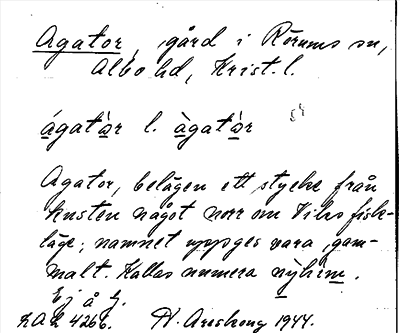 Agator, gård i Rörums sn,
Albo hd, Krist. l.
ágatòr l. àgatòr
Agator, belägen ett stycke från
kusten något norr om Viks fisk-
läge; namnet uppges vara gam-
malt. Kallas numera nýhèm.
Ej å k.
LAL 4266. A. Areskoug 1944.